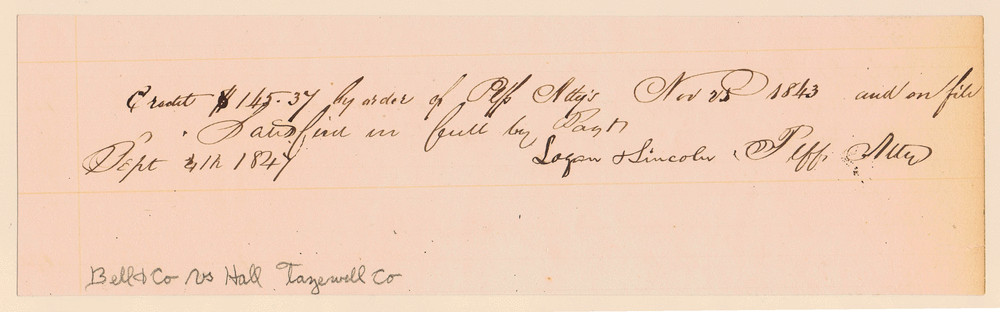 Credit $145.37 by order of Plffs Attys Nov 25 1843 and on file
Satisfied in full by Payt
Sept 4th 1847 Logan & Lincoln Plffs Atty
Bell & Co vs Hall Tazewell Co